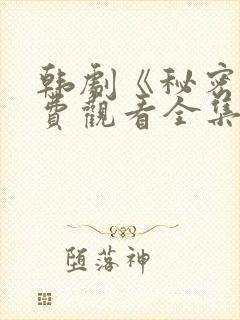 韩剧《秘密
费觀看全集
堕落神